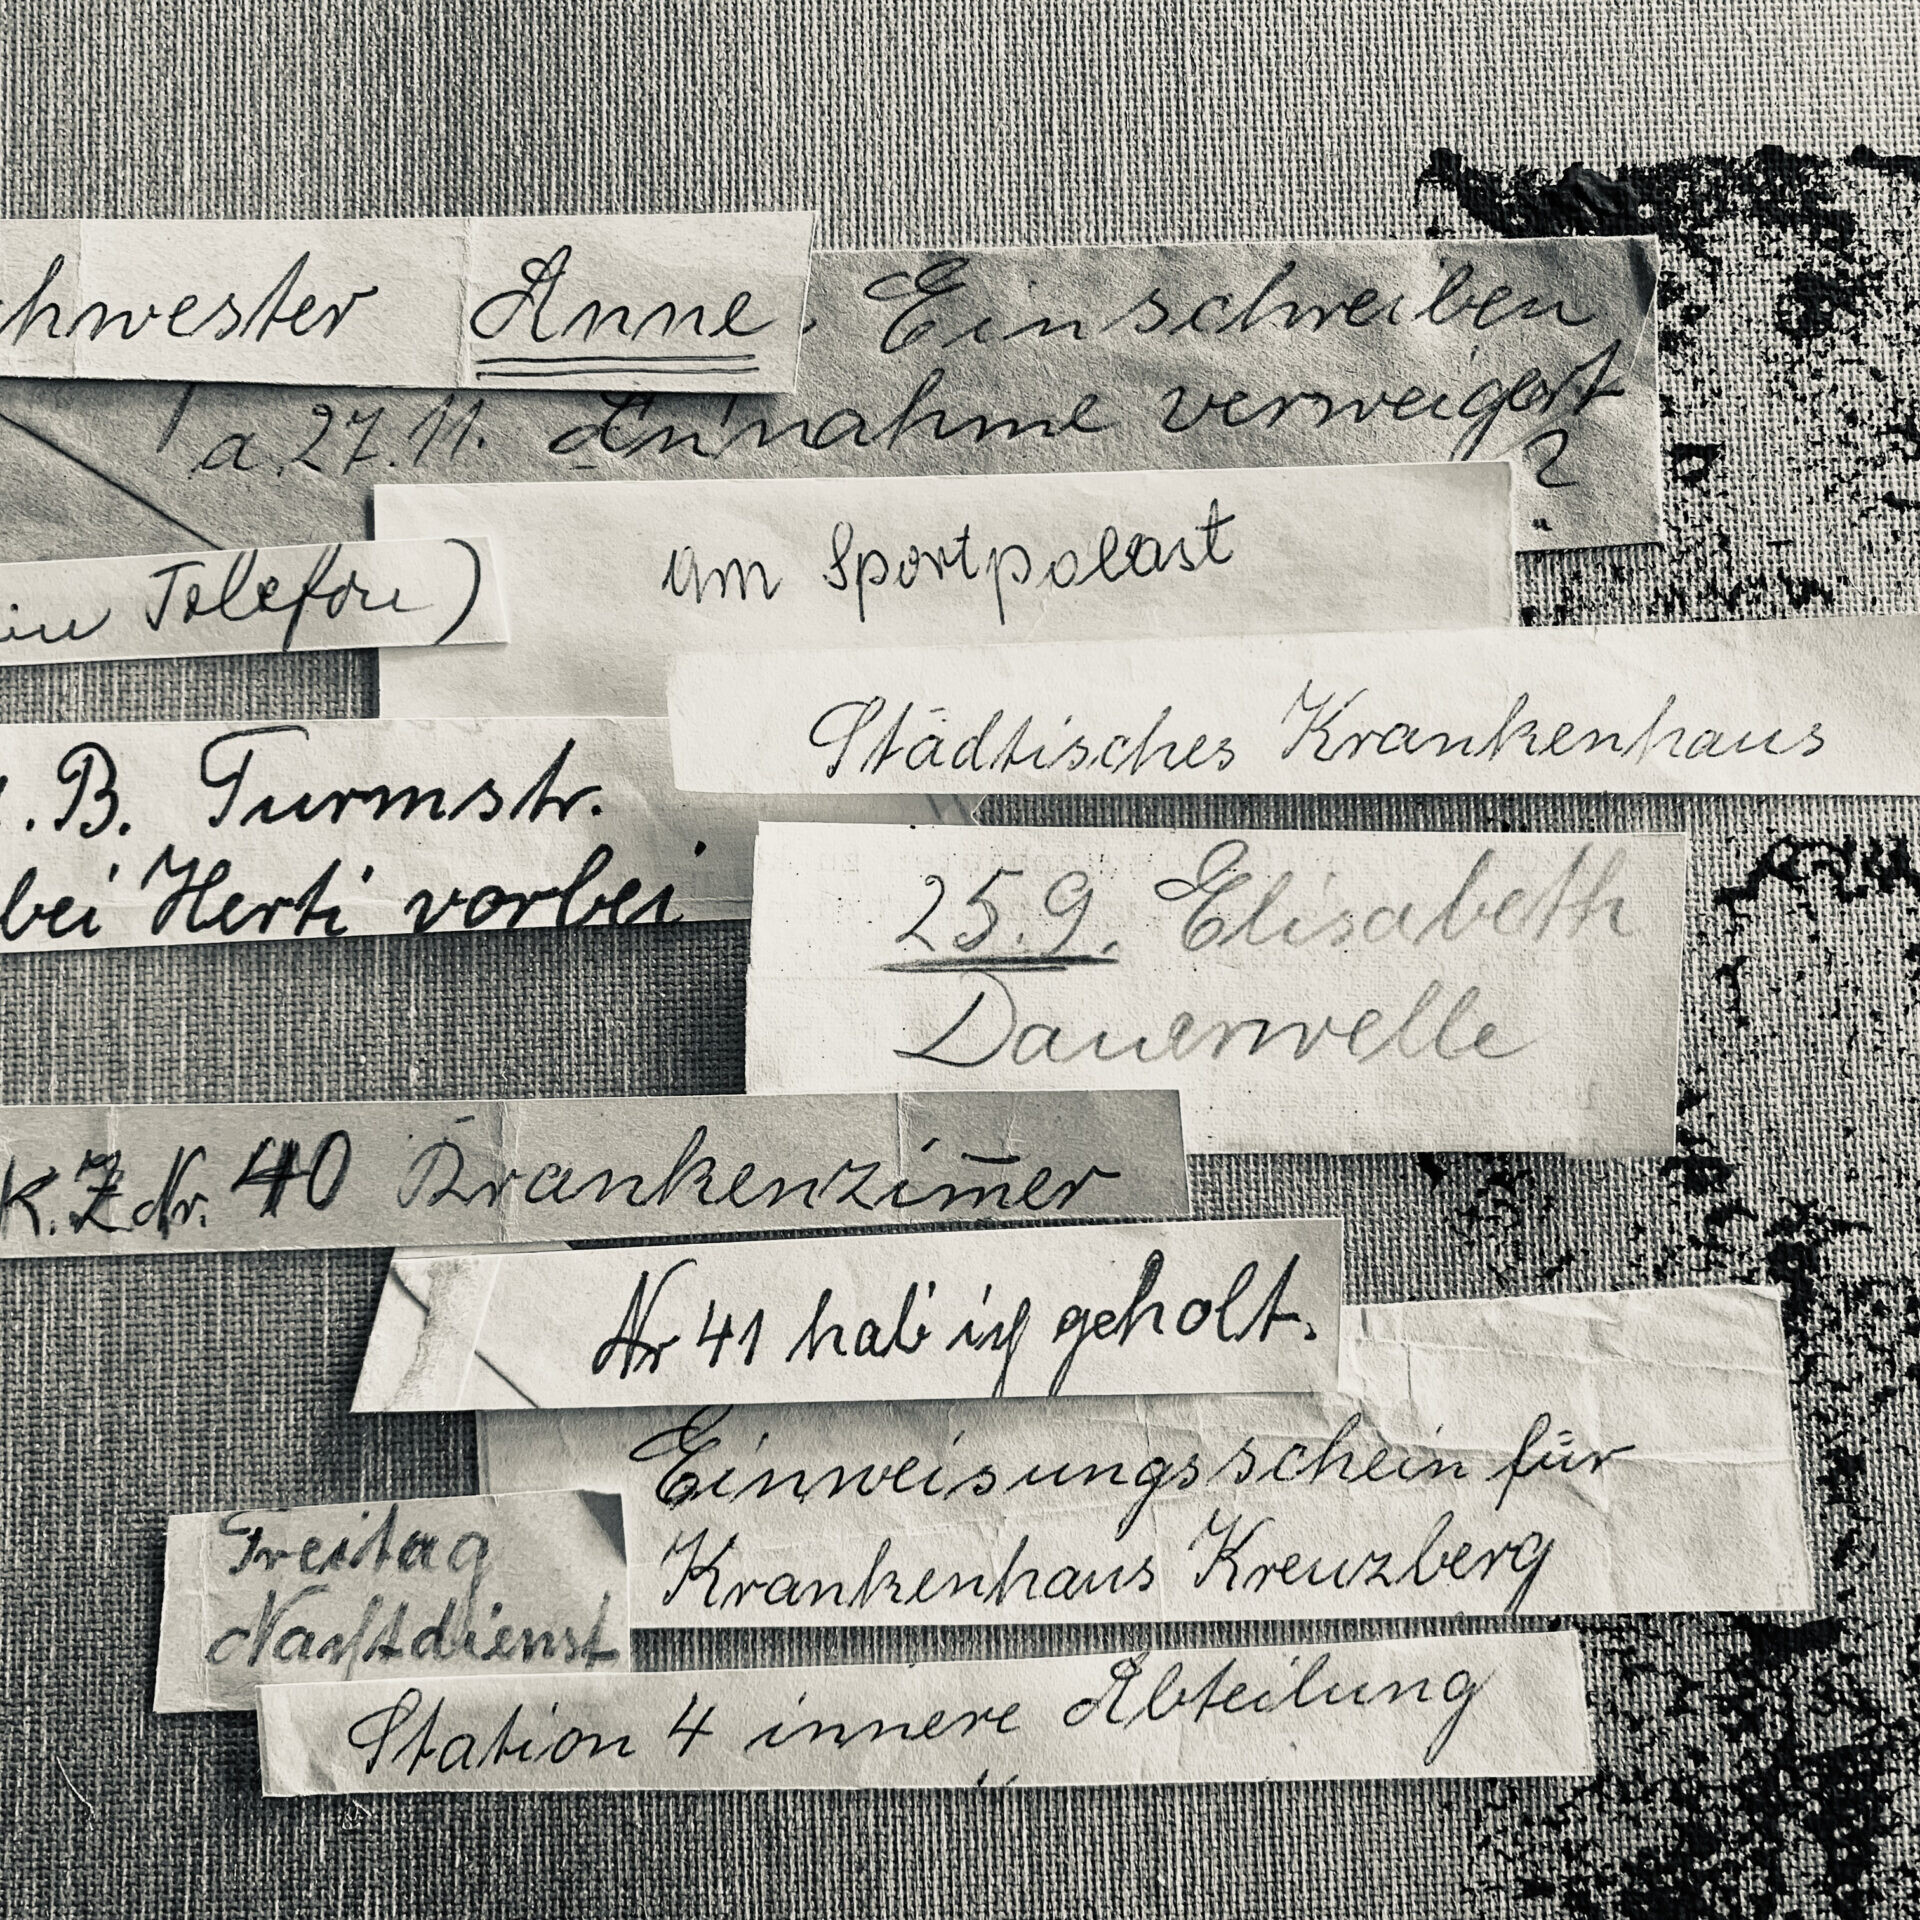 chwester Anne
Einschreiben
a. 27.11. Annahme verweigert
?
am Sportpalast
Telefon)
Städtisches Krankenhaus
. B. Turmstr.
bei Herti vorbei
25.9. Elisabeth
Dauerwelle
K.Z Nr. 40 Krankenzim̅er
Nr 41 hab' ich geholt.
Einweisungsschein für
Krankenhaus Kreuzberg
Freitag
Nachtdienst
Station 4 innere Abteilung